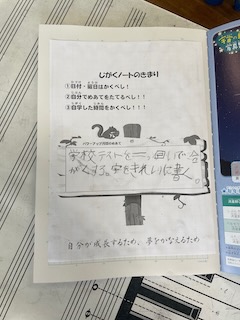 じがくノートのきまり
①日付・曜日はかくべし!
②自分でめあてをたてるべし!!
③自学した時間をかくべし!!!
パワーアップ月間のめあて
学校テストを一っ回で合
かくする。字をきれいに書く
自分が成長するため、夢をかなえるため